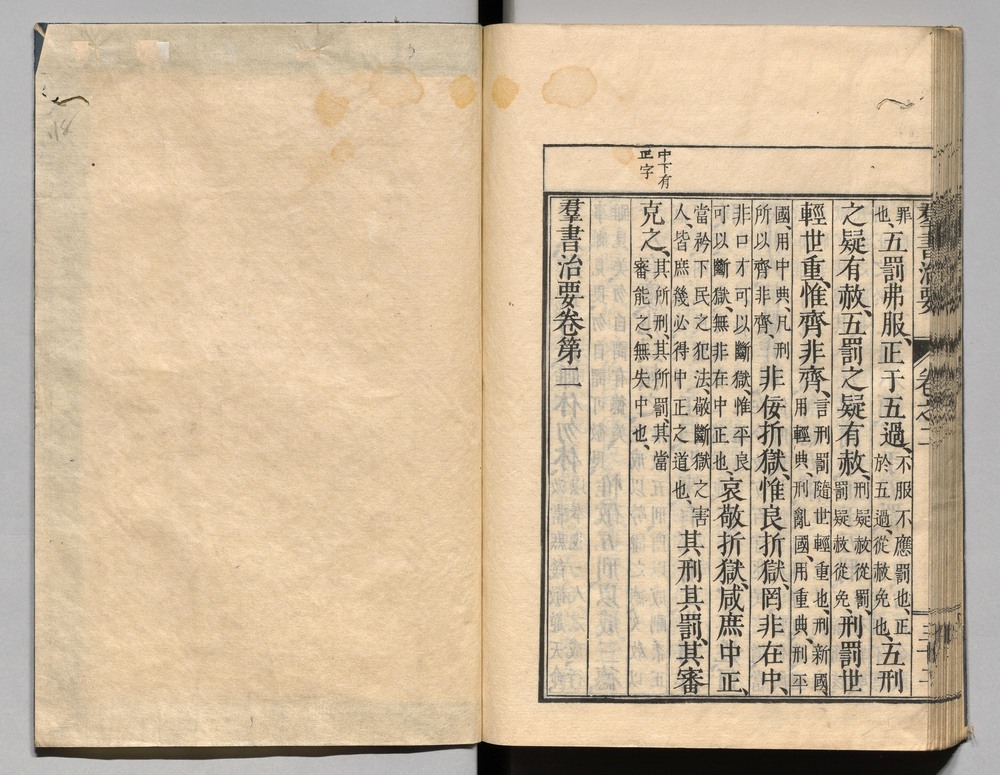 羣書治要 卷之二
中下有
正字
罪也、五罰弗服、正于五過、不服不應罰也、正於五過、從赦免也、五刑
之疑有赦、五罰之疑有赦、刑疑赦從罰、罰疑赦從免、刑罰世
輕世重、惟齊非齊、言刑罰隨世輕重也、刑新國、用輕典、刑亂國、用重典、刑平
國、用中典、凡刑所以齊非齊、非佞折獄、惟良折獄、罔非在中、
非口才可以斷獄、惟平良可以斷獄、無非在中正也、哀敬折獄、咸庶中正、
當矜下民之犯法、敬斷獄之害人、皆庶幾必得中正之道也、其刑其罰、其審
克之、其所刑、其所罰、其當審能之、無失中也、
羣書治要卷第二